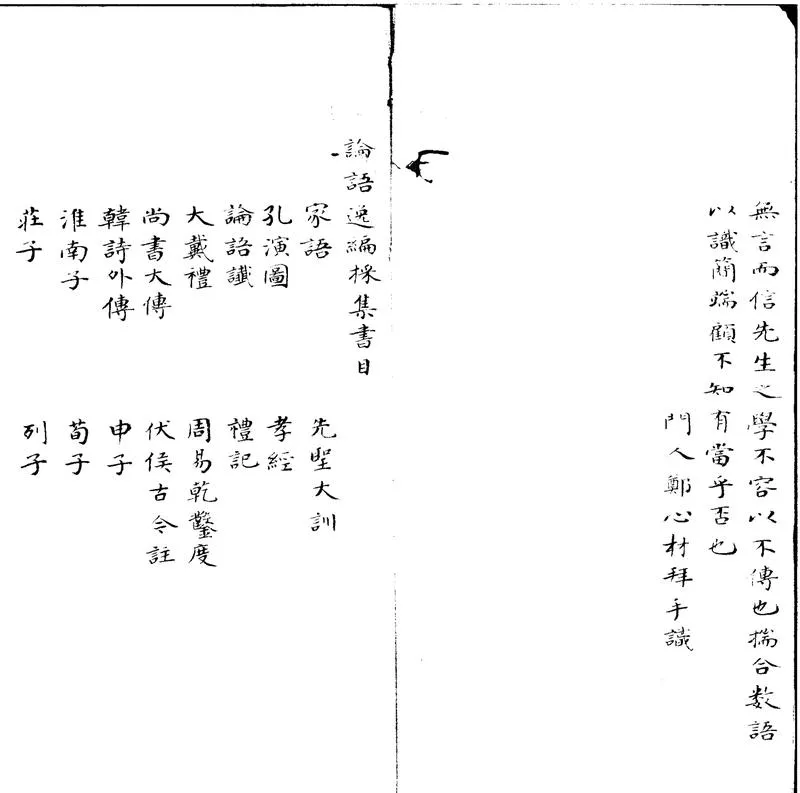 無言而信先生之學不容以不傳也揣合数語
以識簡端顧不知有當乎否也
門人鄭心材拜手識
論語逸編採集書目
家語
先聖大訓
孔演圖
孝經
論語讖
禮記
大戴禮
周易乾鑿度
尚書大傳
伏侯古今註
韓詩外傳
申子
淮南子
荀子
莊子
列子